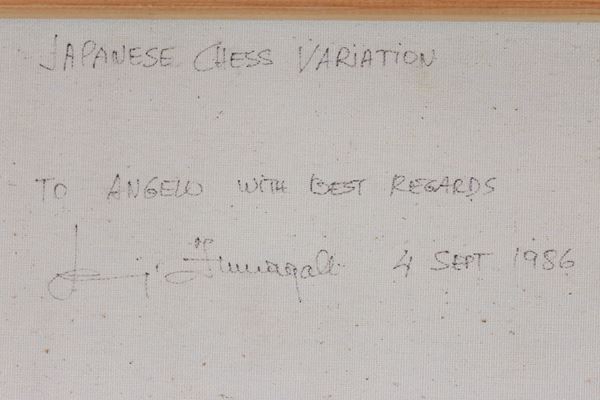 JAPANESE CHESS VARIATION
TO ANGELO WITH BEST REGARDS
Fumagalli 4 SEPT 1986